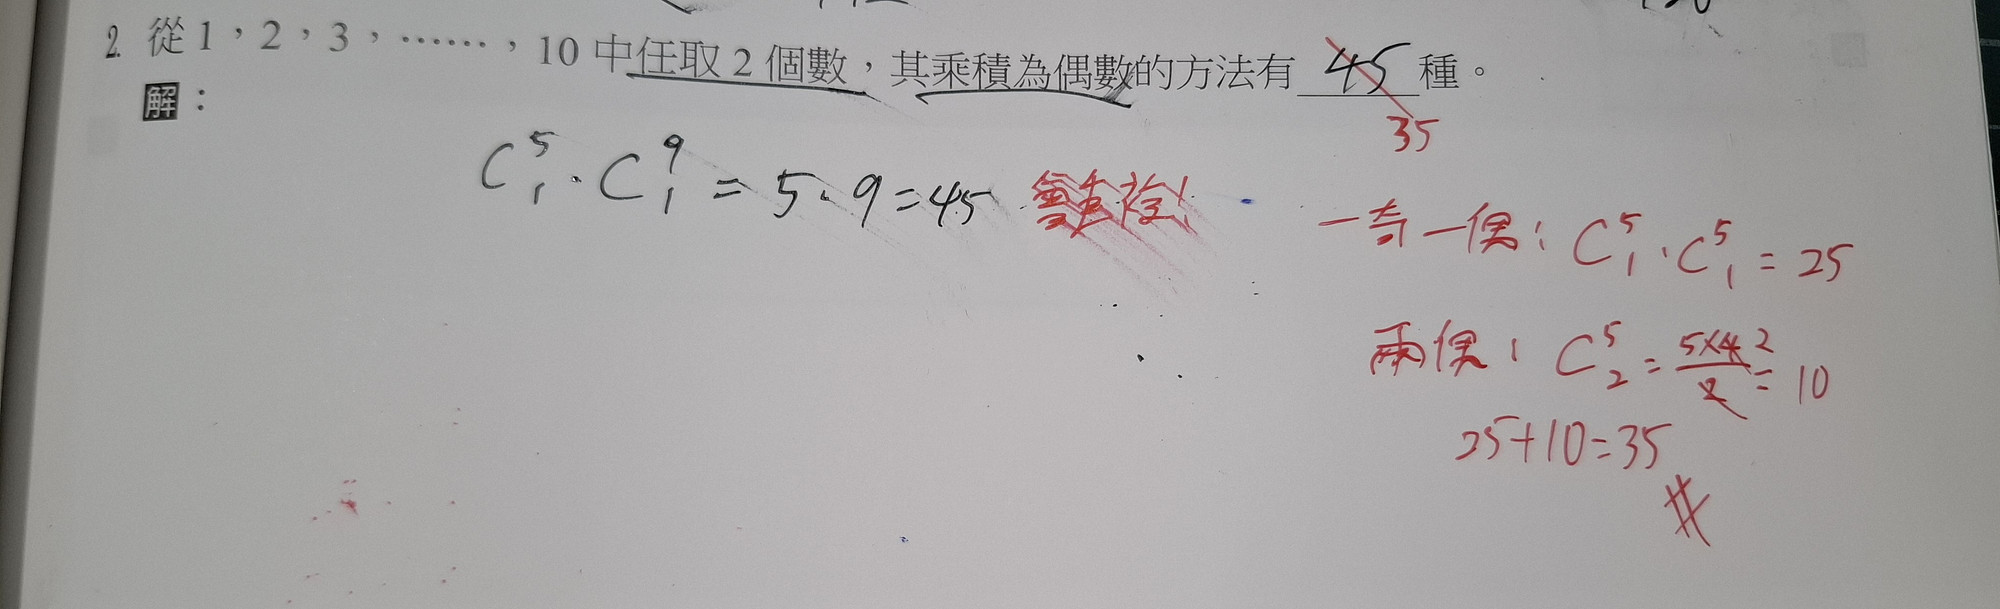 2. 從1,2,3,……,10中任取2個數,其乘積為偶數的方法有 45 種。
35
解:
C⁵₁·C⁹₁=5·9=45
一奇一偶:C⁵₁·C⁵₁=25
兩偶:C⁵₂=5×4/2=10
2
25+10=35
#